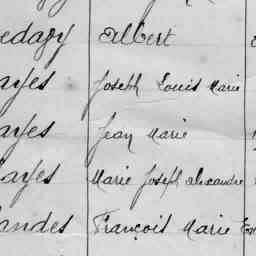 edagy Albert
ayes Joseph Louis Marie
ayes Jean Marie
ayes Marie Joseph alexandre
andes François Marie